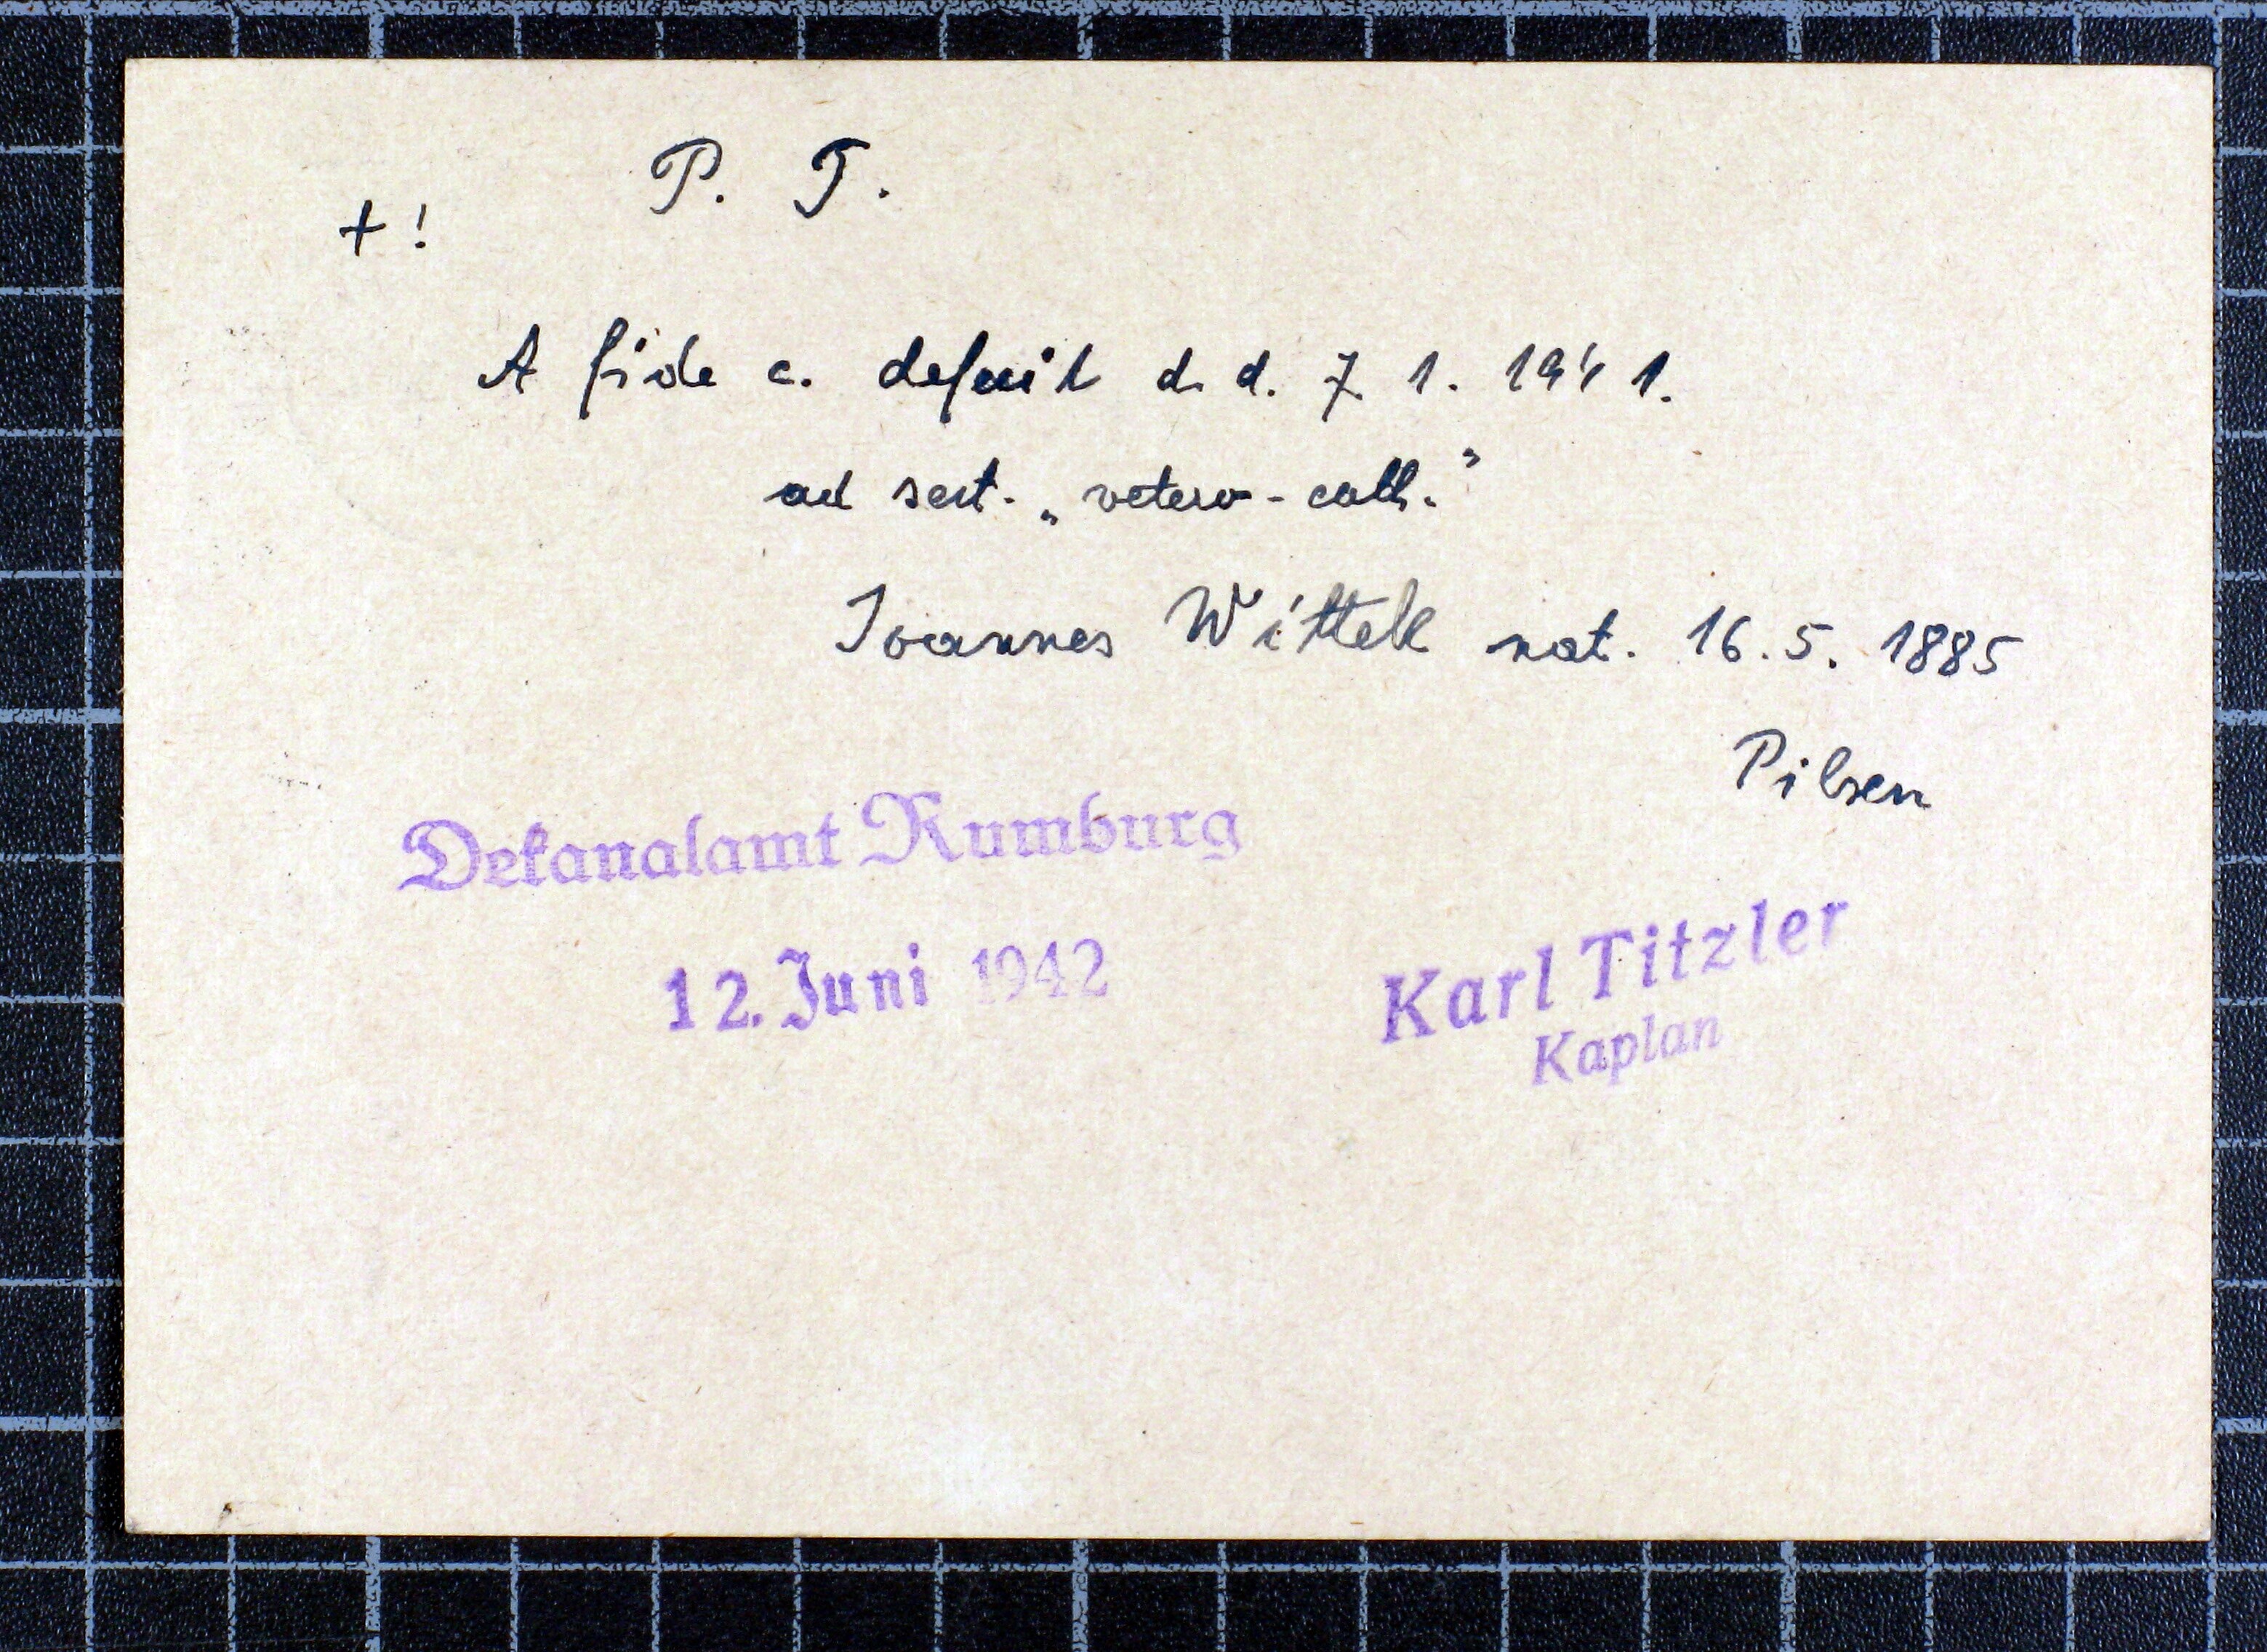 P. T.
+ !
A fide c. defecit d. d. 7. 1. 1941.
ad sect. „vetero-cath.”
Joannes Wittek nat. 16. 5. 1885
Pilsen
Dekanalamt Rumburg
12. Juni 1942
Karl Titzler
Kaplan